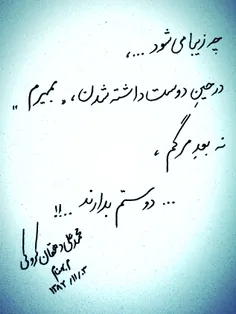 چه زیبا می شود ...،
در حینِ دوست داشته شدن ، بمیرم "
نه بعدِ مرگم ،
... دوستم بدارند ..!!
محمدعلی دهقان کروکی
۱۳۸۲/۱۱/۳